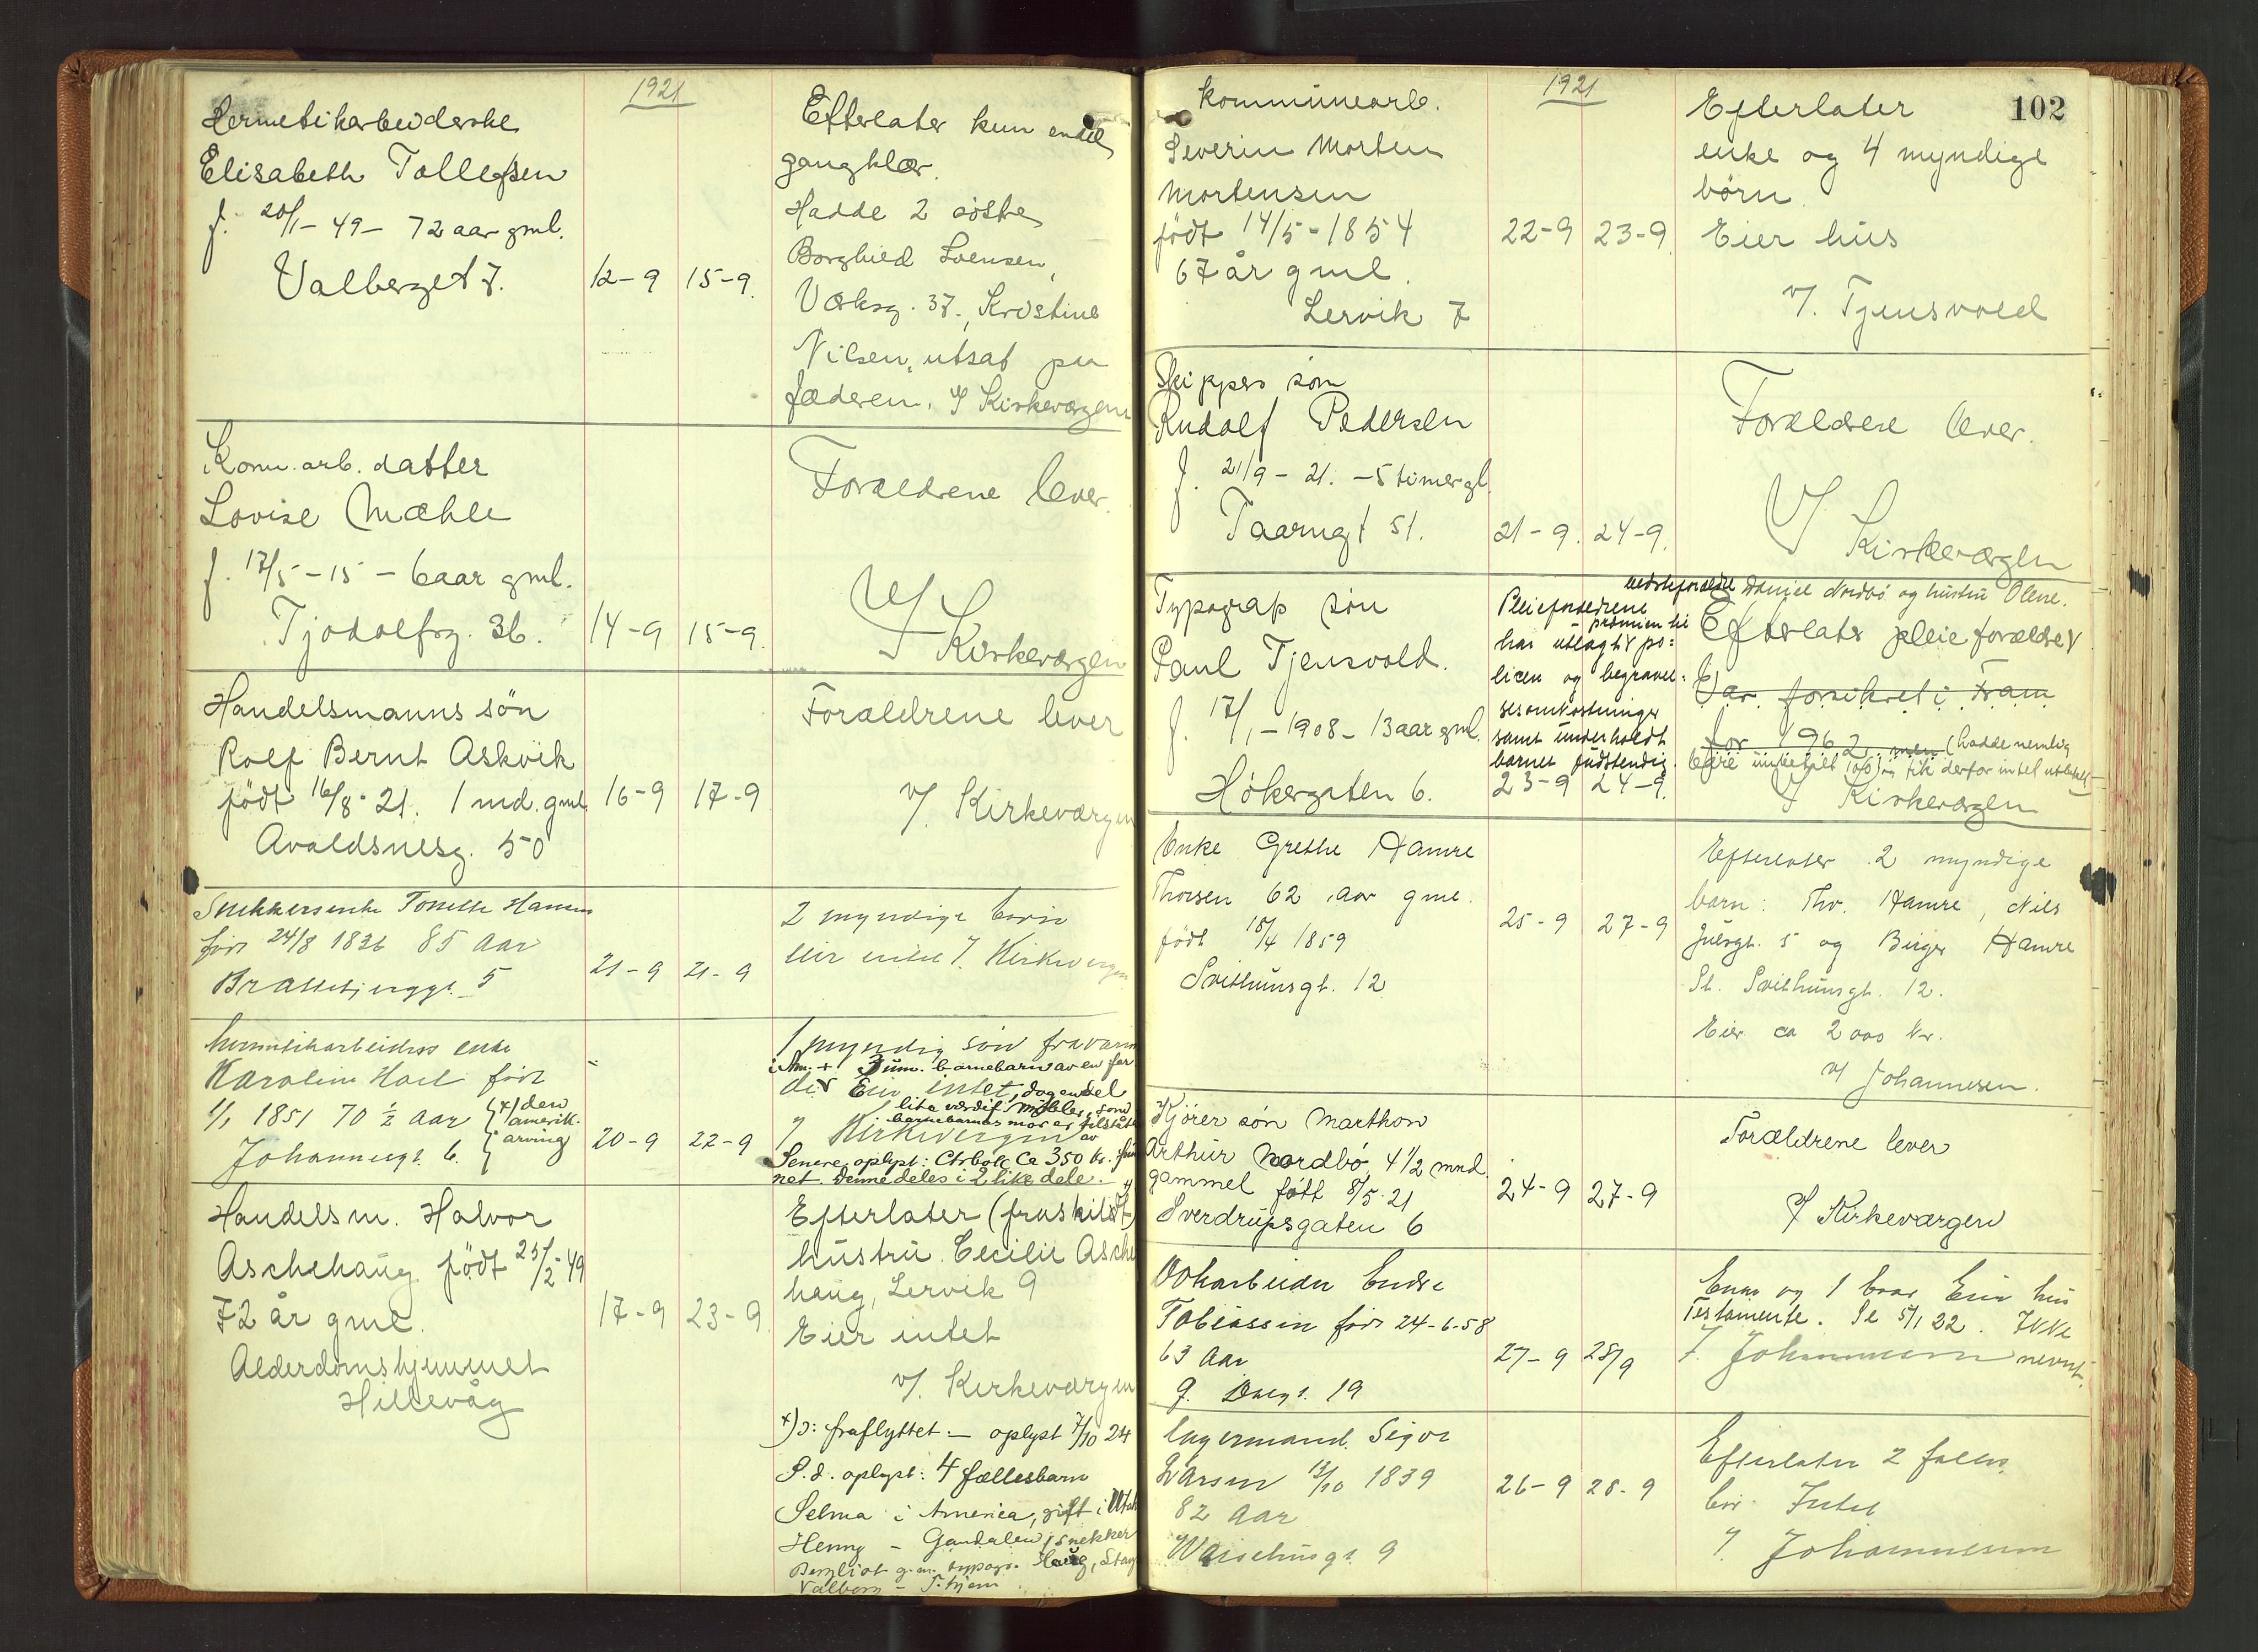 1921
Hermetikarbeiderske
Elisabeth Tollefsen
f. 20/1 - 49 - 72 aar gml.
Valberget 7.
12-9 15-9.
Efterlater kun endel
gangklær.
Hadde 2 søstre
Borghild Svensen,
Værksg. 37., Kristine
Nilsen, utsat pu
fæderen. V/ Kirkevergen
Kom. arb. datter
Lovise Mæhle
f. 17/5 - 15 - 6 aar gml.
Tjodolfsg. 36.
14-9 15-9.
Forældrene lever.
V/ Kirkevergen
Handelsmanns søn
Rolf Bernt Askvik
født 16/8 - 21. 1 md. gml.
Avaldsnesg. 50
16-9 17-9
Forældrene lever
V/. Kirkevergen
Snekkerenke Tonette Hansen
født 24/8 1836 85 Aar
5
21-9 21-9
2 myndige børn
Eier intet V. Kirkevergen
hermetikarbeiders enke
Karoline Hoel født
1/1 1851 70 ½ Aar { x/ den
amerik.
arving
Johannesgt. 6.
20-9 22-9
1 myndig søn
i Am. + 3 um. barnebarn av en før
Eier intet, dog endel
lite værdif. møbler, som
barnebarnas mor er tilstaat
V Kirkevergen av
Senere oplyst: Ctrbok Ca 350 kr. fun
net. Denne deles i 2 like dele.
Handelsm. Halvor
Aschehaug født 23/2 - 49
72 år gml.
Alderdomshjemmet
Hillevåg
17-9 23-9
Efterlater (fraskildt
hustru Cecilie Asche
haug, Lervik 9
Eier intet
V/. Kirkevergen
x) ɔ: fraflyttet - oplyst 7/10 24
S. d. oplyst: 4 fællesbarn
Selma i America, gift i Utah
Henny - Gandalen, snekker
Bergliot g. m. typogr. Haug, Stavgr
Valborg -
1921
102
Kommunearb.
Severin Morten
Mortensen
født 14/5 - 1854
67 år gml.
Lervik 7
22-9 23-9
Efterlater
enke og 4 myndige
børn.
Eier hus
V/. Tjensvold
Skippers søn
Rudolf Pedersen
f. 21/9 - 21. - 5 timer gl.
Taarngt 51.
21-9. 24-9.
Forældrene lever.
V/ Kirkevergen
Typograf søn
Paul Tjensvold.
f. 17/1 - 1908 - 13 aar gml.
Høkergaten 6.
Pleieforældrene
har utlagt præmien til po=
licen og begravel=
sesomkostninger
samt underholdt
barnet fuldstendig.
23-9 24-9.
bedsteforældre Daniel Nordbø og hustru Olene.
Efterlater pleieforældre
Var forsikret i Fram
for 196 2, men (hadde nemlig
fik derfor intet utbetalt
V/ Kirkevergen
Enke Grethe Hamre
Thorsen 62 aar gml.
født 18/4 1859
Svithunsgt. 12
25-9 27-9
Efterlater 2 myndige
barn: Thv. Hamre, Nils
Juelsgt. 5 og Birger Hamre
St. Svithunsgt. 12.
Eier ca 2000 kr.
V/ Johannesen.
Kjører søn Marthon
Arthur Nordbø 4 1/2 mnd
gammel født 8/5 - 21
Sverdrupsgaten 6
24-9 27-9
Forældrene lever
V/ Kirkevergen
Endre
Tobiassen født 24-6-58
63 Aar
19
27-9 28/9
Enke og 1 barn Eier hus
Testamente. Se 5/1 22. Ikke
V. Johannesen nevnt.
Sigve
Larsen 13/10 1839
82 Aar
9
26-9 28-9
Efterlater 2 
Intet
V. Johannesen